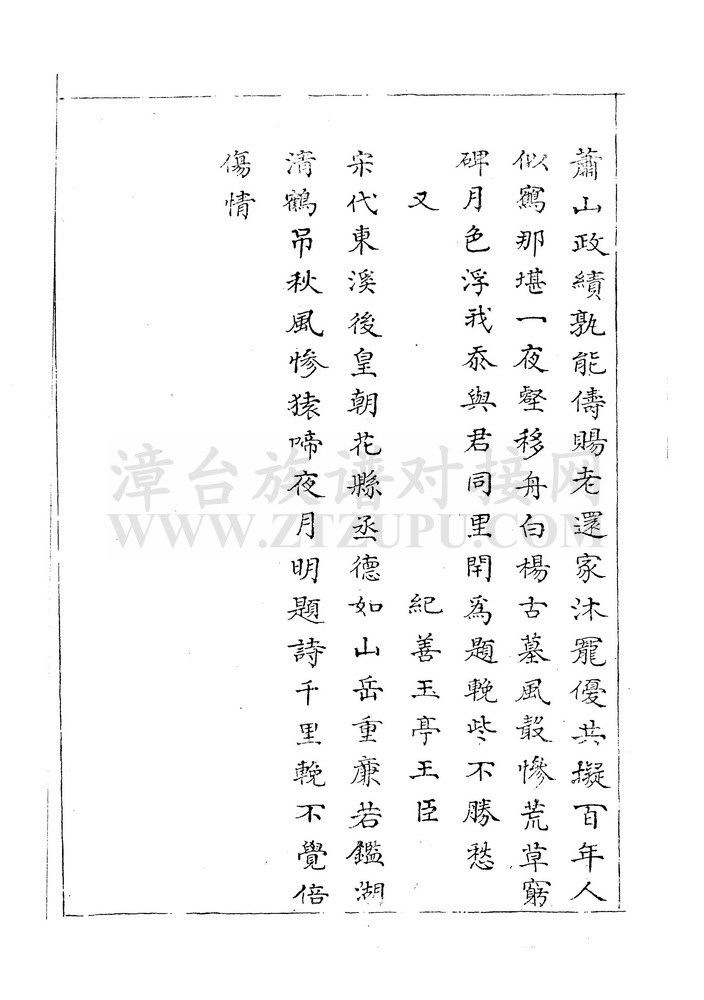 蕭山政績孰能儔賜老還家沐寵優共擬百年人
似鶴那堪一夜壑移舟白楊古墓風聲慘荒草窮
碑月色浮我忝與君同里閈為題輓些不勝愁
又 紀善玉亭王臣
宋代東溪後皇朝花縣丞德如山岳重廉若鑑湖
清鶴吊秋風慘猿啼夜月明題詩千里輓不覺倍
傷情
漳台族谱对接网
WWW.ZTZUPU.COM